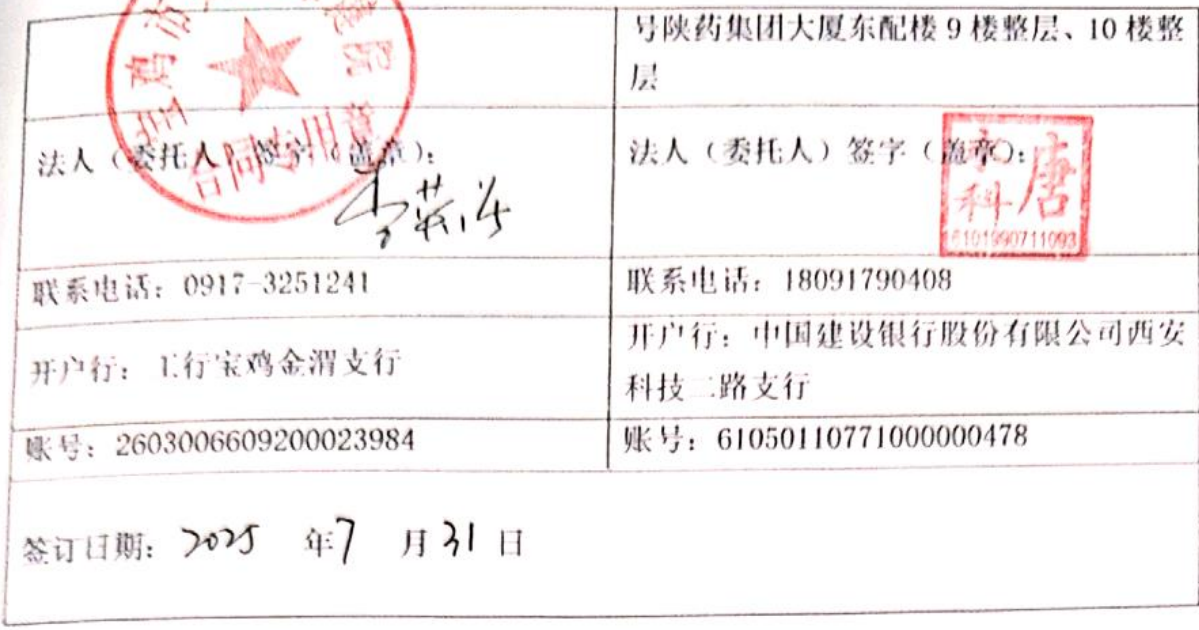 号陕药集团大厦东配楼 9 楼整层、10 楼整
层
合同专用章
法人（委托人）签字（盖章）：
法人（委托人）签字（盖章）：
科 唐
6101990711093
联系电话：0917-3251241
联系电话：18091790408
开户行：工行宝鸡金渭支行
开户行：中国建设银行股份有限公司西安
科技二路支行
账号：2603006609200023984
账号：61050110771000000478
签订日期：2025 年 7 月 31 日